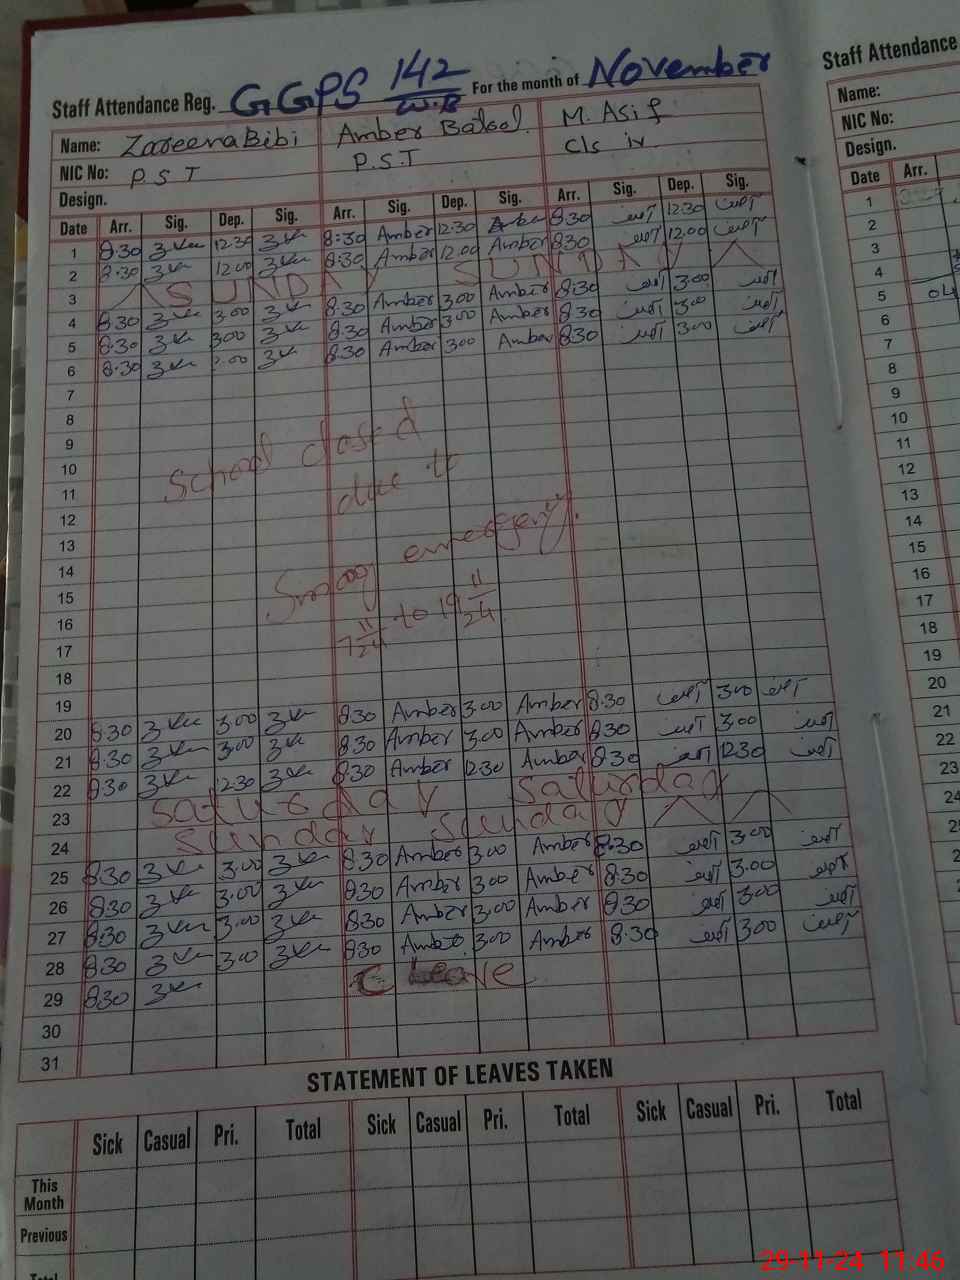 Staff Attendance Reg. GGPS 142/W.B For the month of November
Name: Zareena Bibi Amber Batool M. Asif
NIC No: P.S.T P.S.T Cls iv.
Design.
Date Arr. Sig. Dep. Sig. Arr. Sig. Dep. Sig. Arr. Sig. Dep. Sig.
1 8:30 12:30 8:30 Amber 12:30 Amber 8:30 آصف 12:30 آصف
2 8:30 12:00 8:30 Amber 12:00 Amber 8:30 آصف 12:00 آصف
3 SUNDAY SUNDAY
4 8:30 3:00 8:30 Amber 3:00 Amber 8:30 آصف 3:00 آصف
5 8:30 3:00 8:30 Amber 3:00 Amber 8:30 آصف 3:00 آصف
6 8:30 3:00 8:30 Amber 3:00 Amber 8:30 آصف 3:00 آصف
7
8
9 School closed
10
11 due to
12
13
14 Smog emergency.
15
16 7 11/24 to 19 11/24
17
18
19
20 8:30 3:00 8:30 Amber 3:00 Amber 8:30 آصف 3:00 آصف
21 8:30 3:00 8:30 Amber 3:00 Amber 8:30 آصف 3:00 آصف
22 8:30 12:30 8:30 Amber 12:30 Amber 8:30 آصف 12:30 آصف
23 Saturday Saturday
24 Sunday Sunday
25 8:30 3:00 8:30 Amber 3:00 Amber 8:30 آصف 3:00 آصف
26 8:30 3:00 8:30 Amber 3:00 Amber 8:30 آصف 3:00 آصف
27 8:30 3:00 8:30 Amber 3:00 Amber 8:30 آصف 3:00 آصف
28 8:30 3:00 8:30 Amber 3:00 Amber 8:30 آصف 3:00 آصف
29 8:30 C Leave
30
31
STATEMENT OF LEAVES TAKEN
Sick Casual Pri. Total Sick Casual Pri. Total Sick Casual Pri. Total
This Month
Previous
Total
Staff Attendance
Name:
NIC No:
Design.
Date Arr.
1
2
3
4
5 04
6
7
8
9
10
11
12
13
14
15
16
17
18
19
20
21
22
23
24
29-11-24 11:46